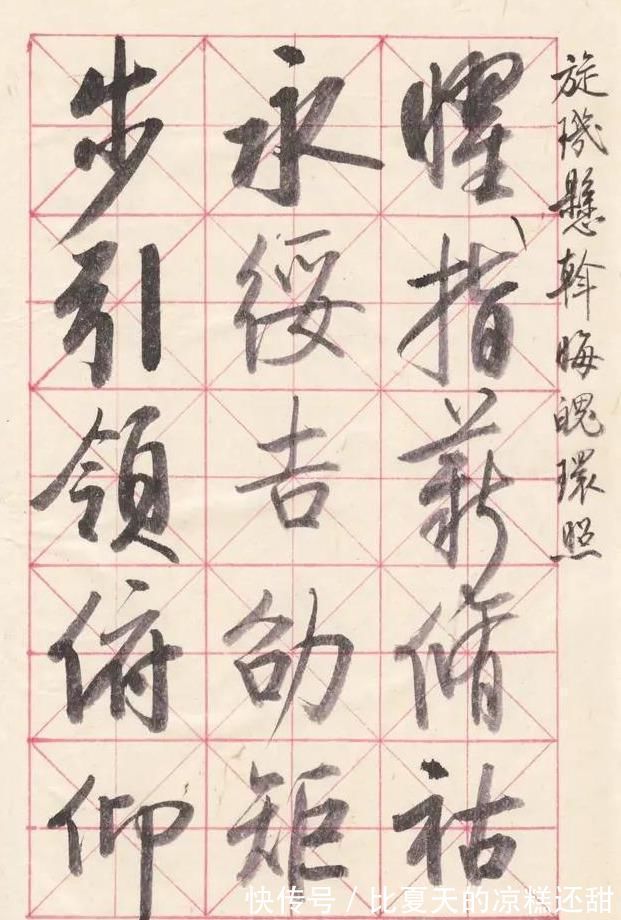 旋璣懸斡晦魄環照
懼指薪脩祜
永綏吉劭矩
步引領俯仰
快传号/比夏天的凉糕还甜